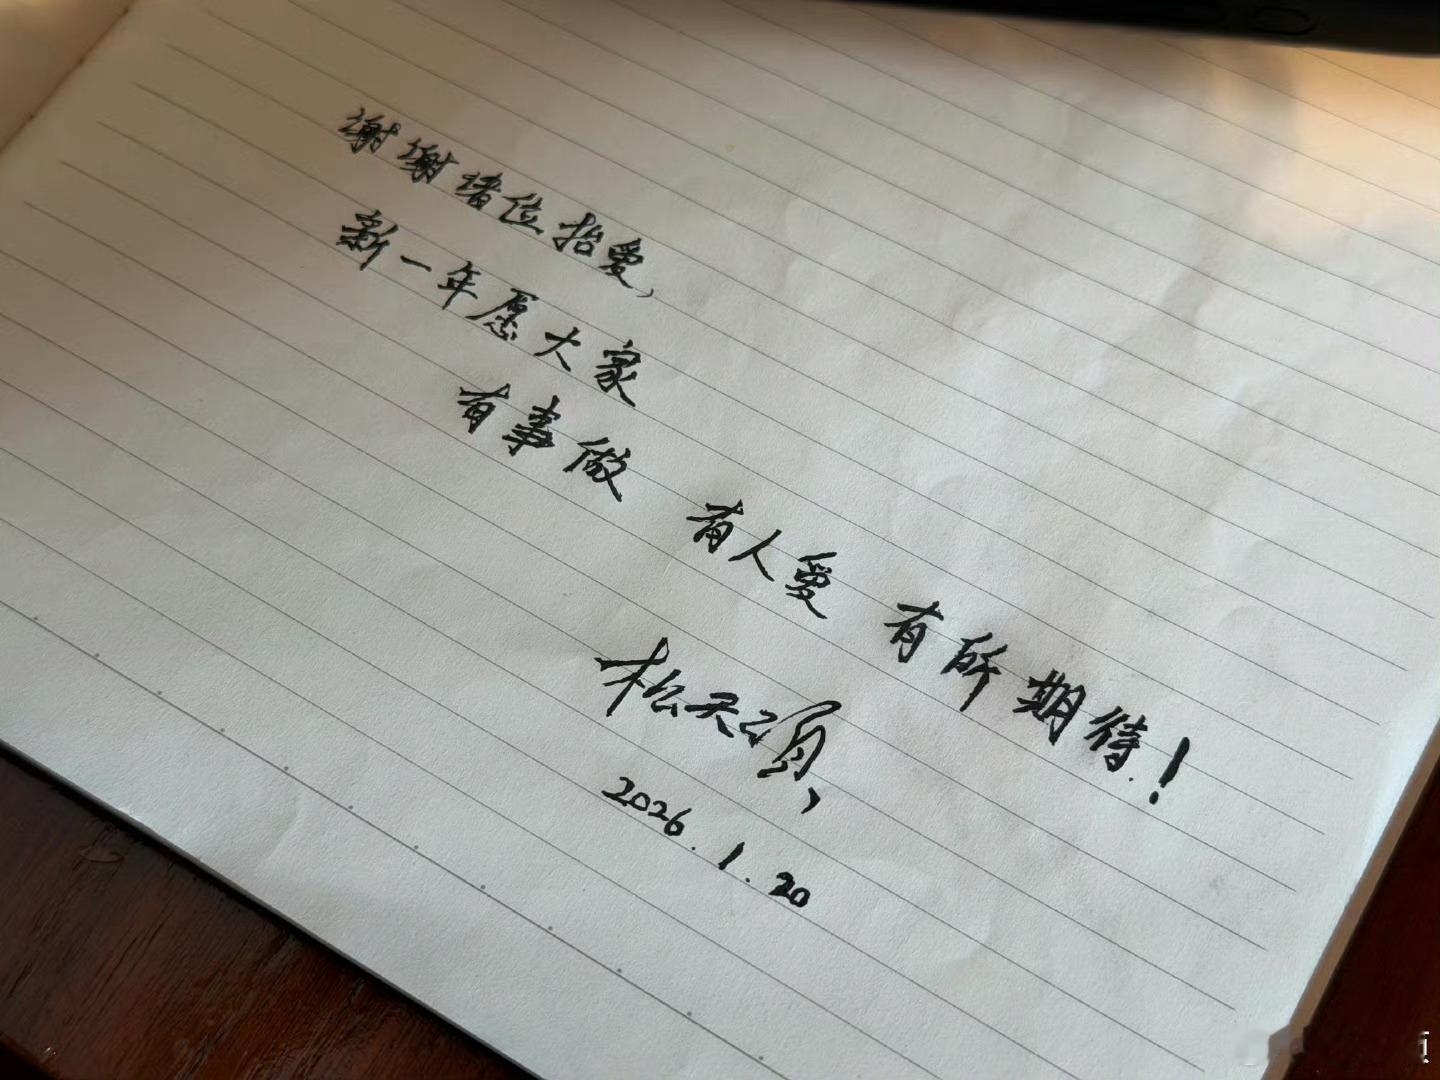 谢谢诸位抬爱,
新一年愿大家
有事做 有人爱 有所期待!
松天硕,
2026.1.20